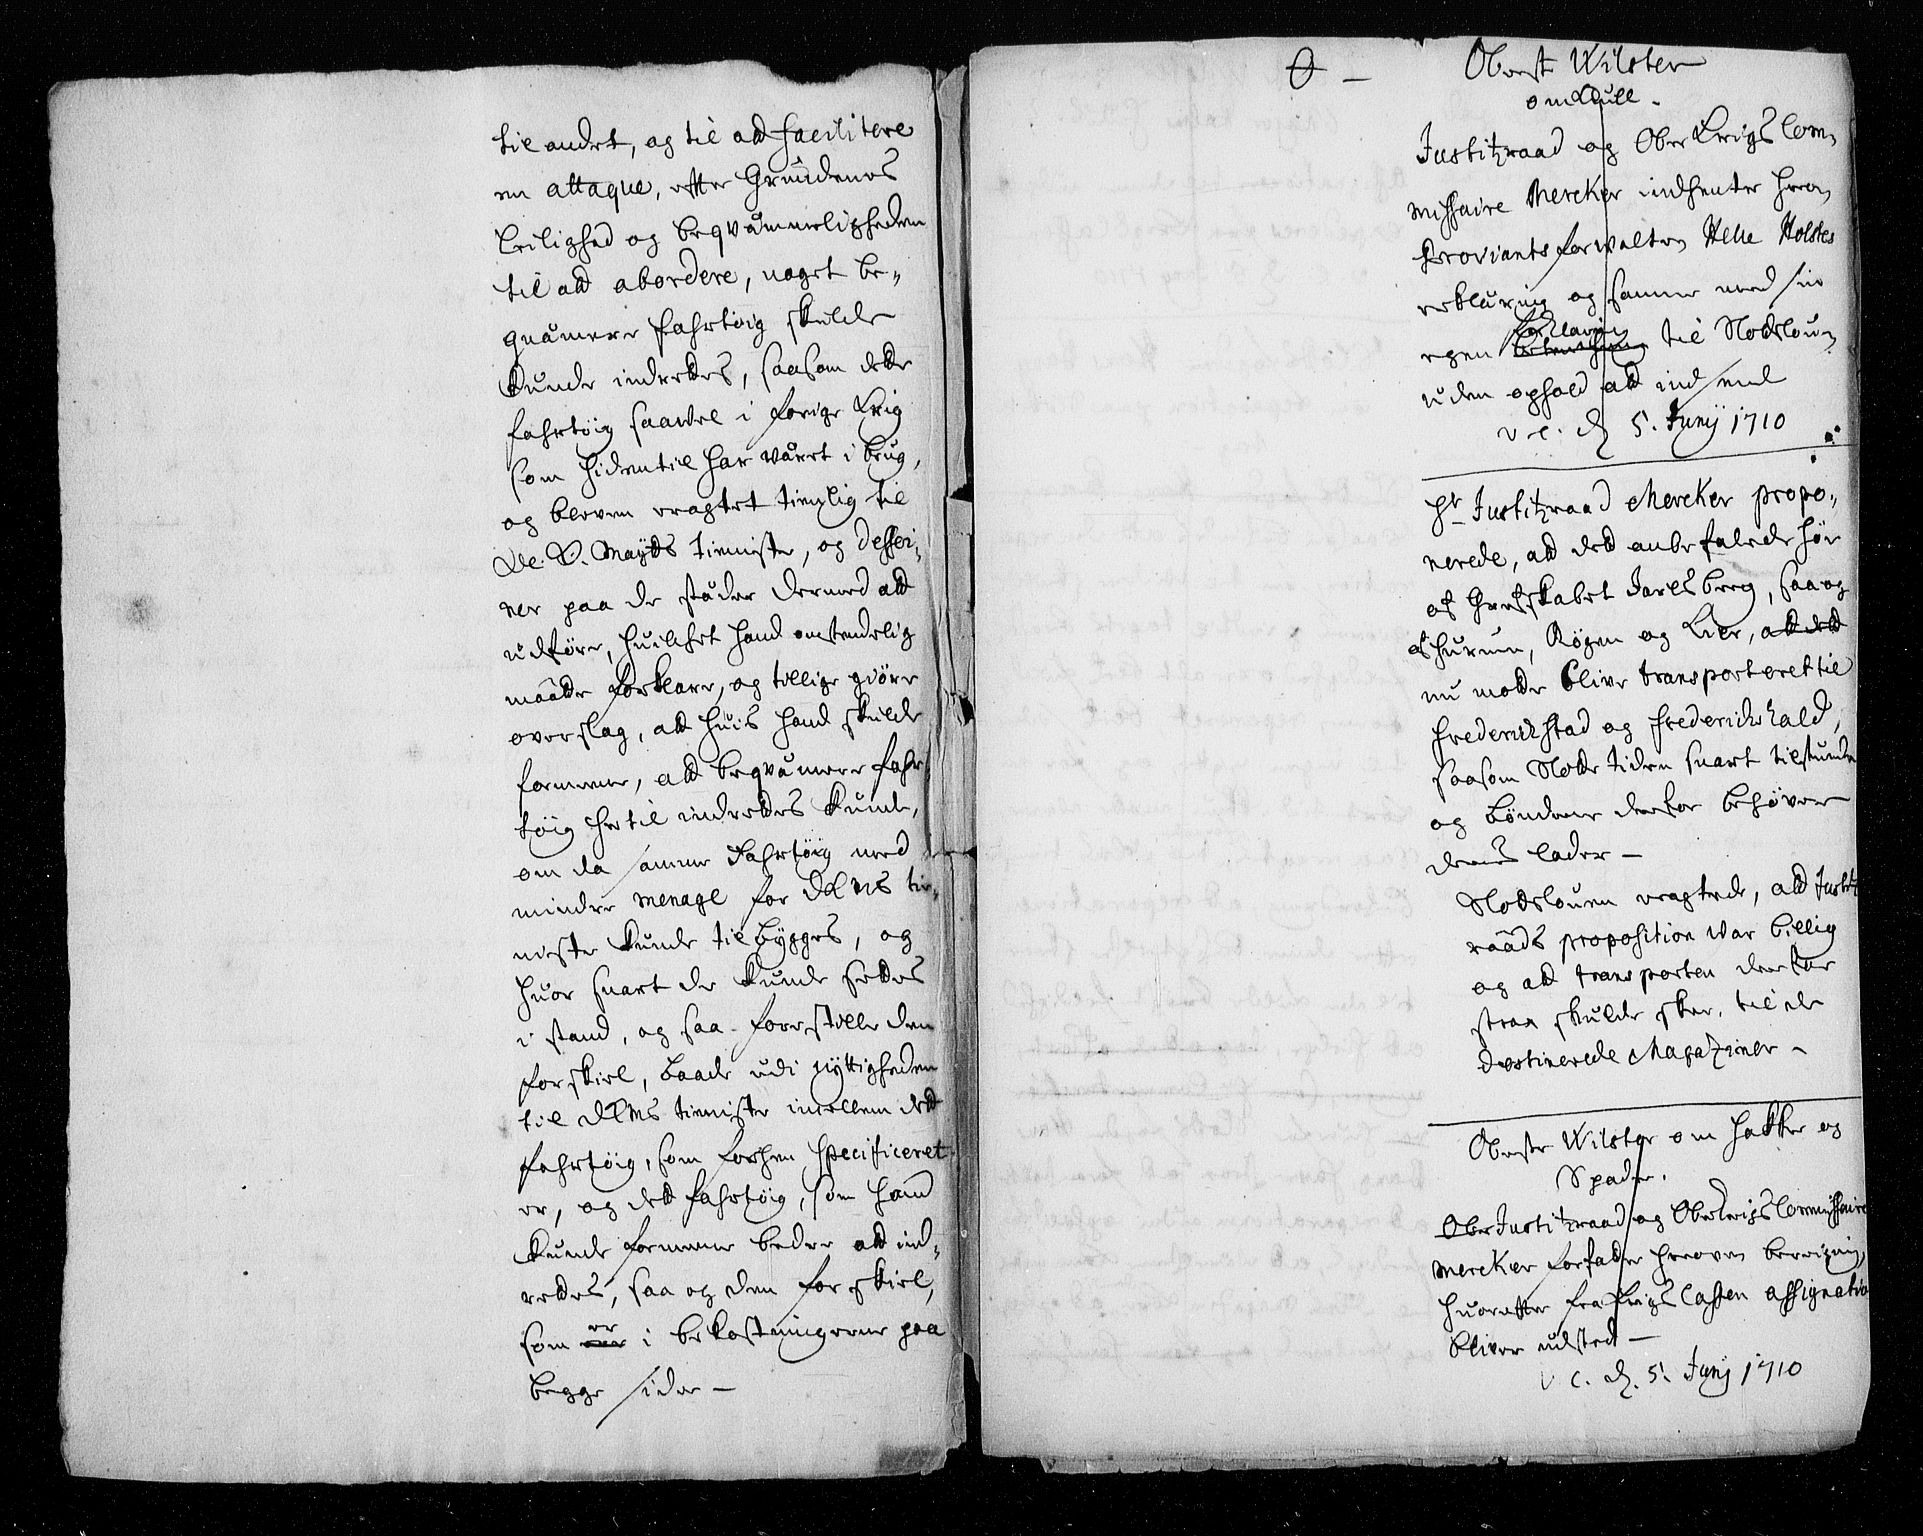 til andet, og til att facilitere
en attaque, effter Grundenes
Leilighed og beqvämmeligheden
til att abordere, noget be„
quämere fahrtöig skulde
kunde indrettes, saasom dette
fahrtöig saavel i forige Krig
som hidentil har väret i brug,
og bleven eragtet tienlig til
De. K. Maytts tienniste, og dessei„
ner paa de städer dermed att
udföre, huilchet hand omstendelig
maatte forklare, og tillige giöre
overslag, att huis hand skulde
formeene, att beqvämere fahr
töig hertil indrettes kunde,
om da samme Fahrtöig med
mindre menage for DKMs tie„
niste kunde tilbÿgges, og
huor snart de kunde settes
i stand, og saa forrestille den
forskiel, baade udi nÿttigheden
til DKMs tienniste imellem dett
fahrtöig, som forhen specificeret
er, og dett fahrtöig, som hand
kunde formeene bedre att ind„
rettes, saa og den forskiel,
som er i bekostningerne paa
begge sider —
O —
Oberste Wilster
om Kull.
Justitzraad og Ober Krigs Com„
missaire Mercker indhenter herom
Proviantsforvalter Helle Holstes
erklæring og samme med sin
egen Erklæring til Slotsloun
uden ophold att indsend
V. C. d 5. Junÿ 1710
Hr Justitzraad Mercker propo„
nerede, att dett anbefalede Höe
af Grefskabet Jarlsberg, saa og
af Hurum, Rögen og Lier, att dett
nu motte blive transporteret til
Frederichstad og Frederichshald,
saasom Slotte tiden snart tilstunder
og Bönderne derfor behöver
deris lader —
Slotslouen eragtede, att Justitz
raads proposition var billig
og att transporten derfor
strax skulde skee, til de
destinerede Magaziner —
Oberste Wilster om Hakker og
Spader.
Ober Justitzraad og OberKrigs Commissaire
Mercker forfatter herover beregning,
huoreffter fra Krigs Cassen assignation
bliver udsted —
V C. d. 5. Junÿ 1710